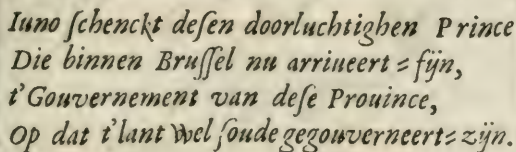 Iuno ſchenckt deſen doorluchtighen Prince
Die binnen Bruſſel nu arriueert⸗ſijn,
t'Gouvernement van deſe Prouince,
Op dat t'lant wel ſoude gegouverneert⸗zijn.